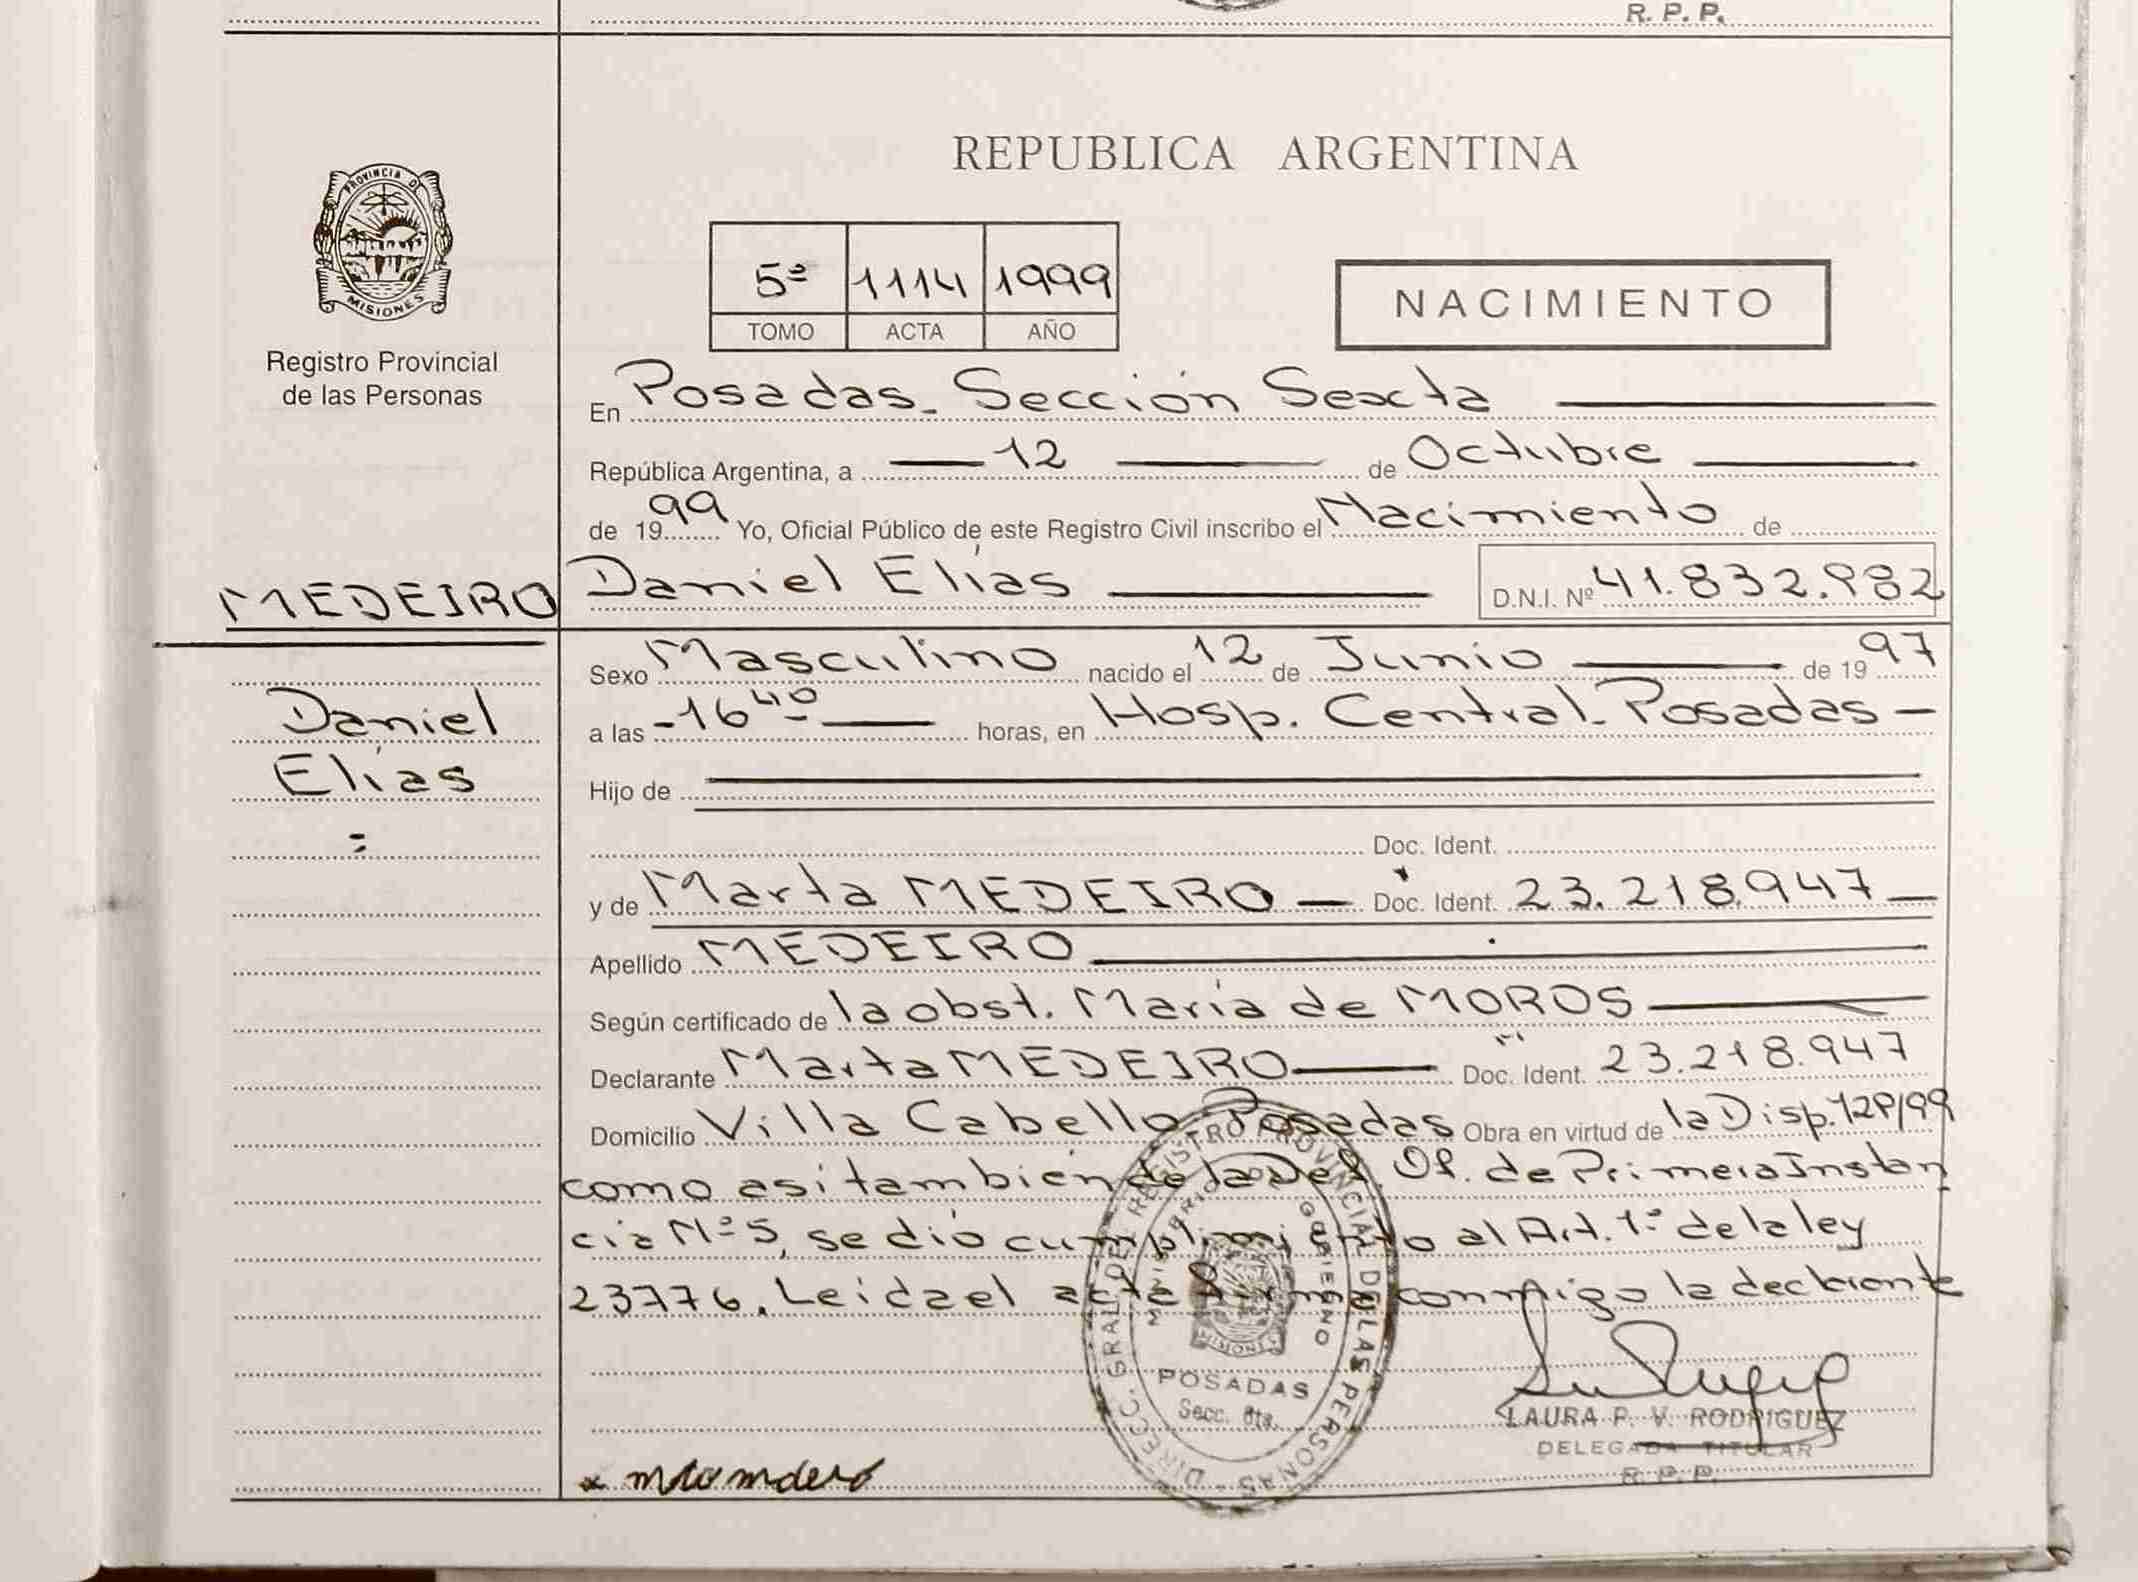 R. P. P.
PROVINCIA DE
MISIONES
Registro Provincial
de las Personas
REPUBLICA ARGENTINA
5º 1114 1999
TOMO ACTA AÑO
NACIMIENTO
En Posadas_ Sección Sexta
República Argentina, a 12 de Octubre
de 1999 Yo, Oficial Público de este Registro Civil inscribo el Nacimiento de
MEDEIRO Daniel Elías D.N.I. Nº 41.832.982
Sexo Masculino nacido el 12 de Junio de 1997
Daniel
a las -16 40 horas, en Hosp. Central_ Posadas -
Elías
Hijo de
Doc. Ident.
y de Marta MEDEIRO - Doc. Ident. 23.218.947
Apellido MEDEIRO
Según certificado de la obst. María de MOROS
Declarante Marta MEDEIRO Doc. Ident. 23.218.947
Domicilio Villa Cabello Posadas Obra en virtud de la Disp. 129/99
como asi también de la Def. Of. de Primera Instan
cia Nº 5, se dió cumplimiento al Art. 1º de la ley
23776. Leida el acta firma conmigo la declarante
DIRECC. GRAL DEL REGISTRO PROVINCIAL DE LAS PERSONAS
MINISTERIO DE GOBIERNO
MISIONES
POSADAS
Secc. 6ta.
LAURA P. V. RODRIGUEZ
DELEGADA TITULAR
R. P. P.